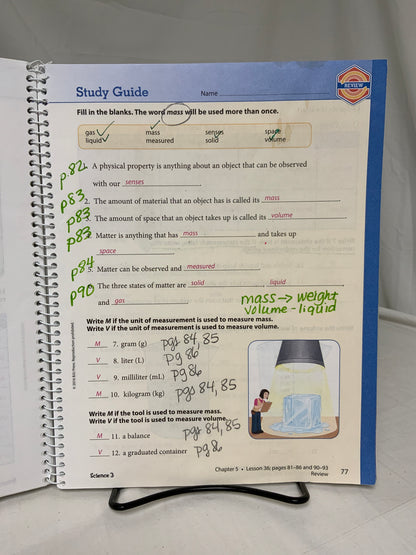 Study Guide
Name
REVIEW
Fill in the blanks. The word mass will be used more than once.
gas mass senses space
liquid measured solid volume
p.82 1. A physical property is anything about an object that can be observed
with our senses.
p83 2. The amount of material that an object has is called its mass.
p83 3. The amount of space that an object takes up is called its volume.
p83 4. Matter is anything that has mass and takes up
space.
p84 5. Matter can be observed and measured.
p90 6. The three states of matter are solid, liquid
and gas.
mass → weight
volume - liquid
Write M if the unit of measurement is used to measure mass.
Write V if the unit of measurement is used to measure volume.
M 7. gram (g) pgs 84, 85
V 8. liter (L) pg 86
V 9. milliliter (mL) pg 86
M 10. kilogram (kg) pgs 84, 85
Write M if the tool is used to measure mass.
Write V if the tool is used to measure volume.
M 11. a balance pgs 84, 85
V 12. a graduated container pg 86
Science 3
Chapter 5 • Lesson 36; pages 81–86 and 90–93
Review
77